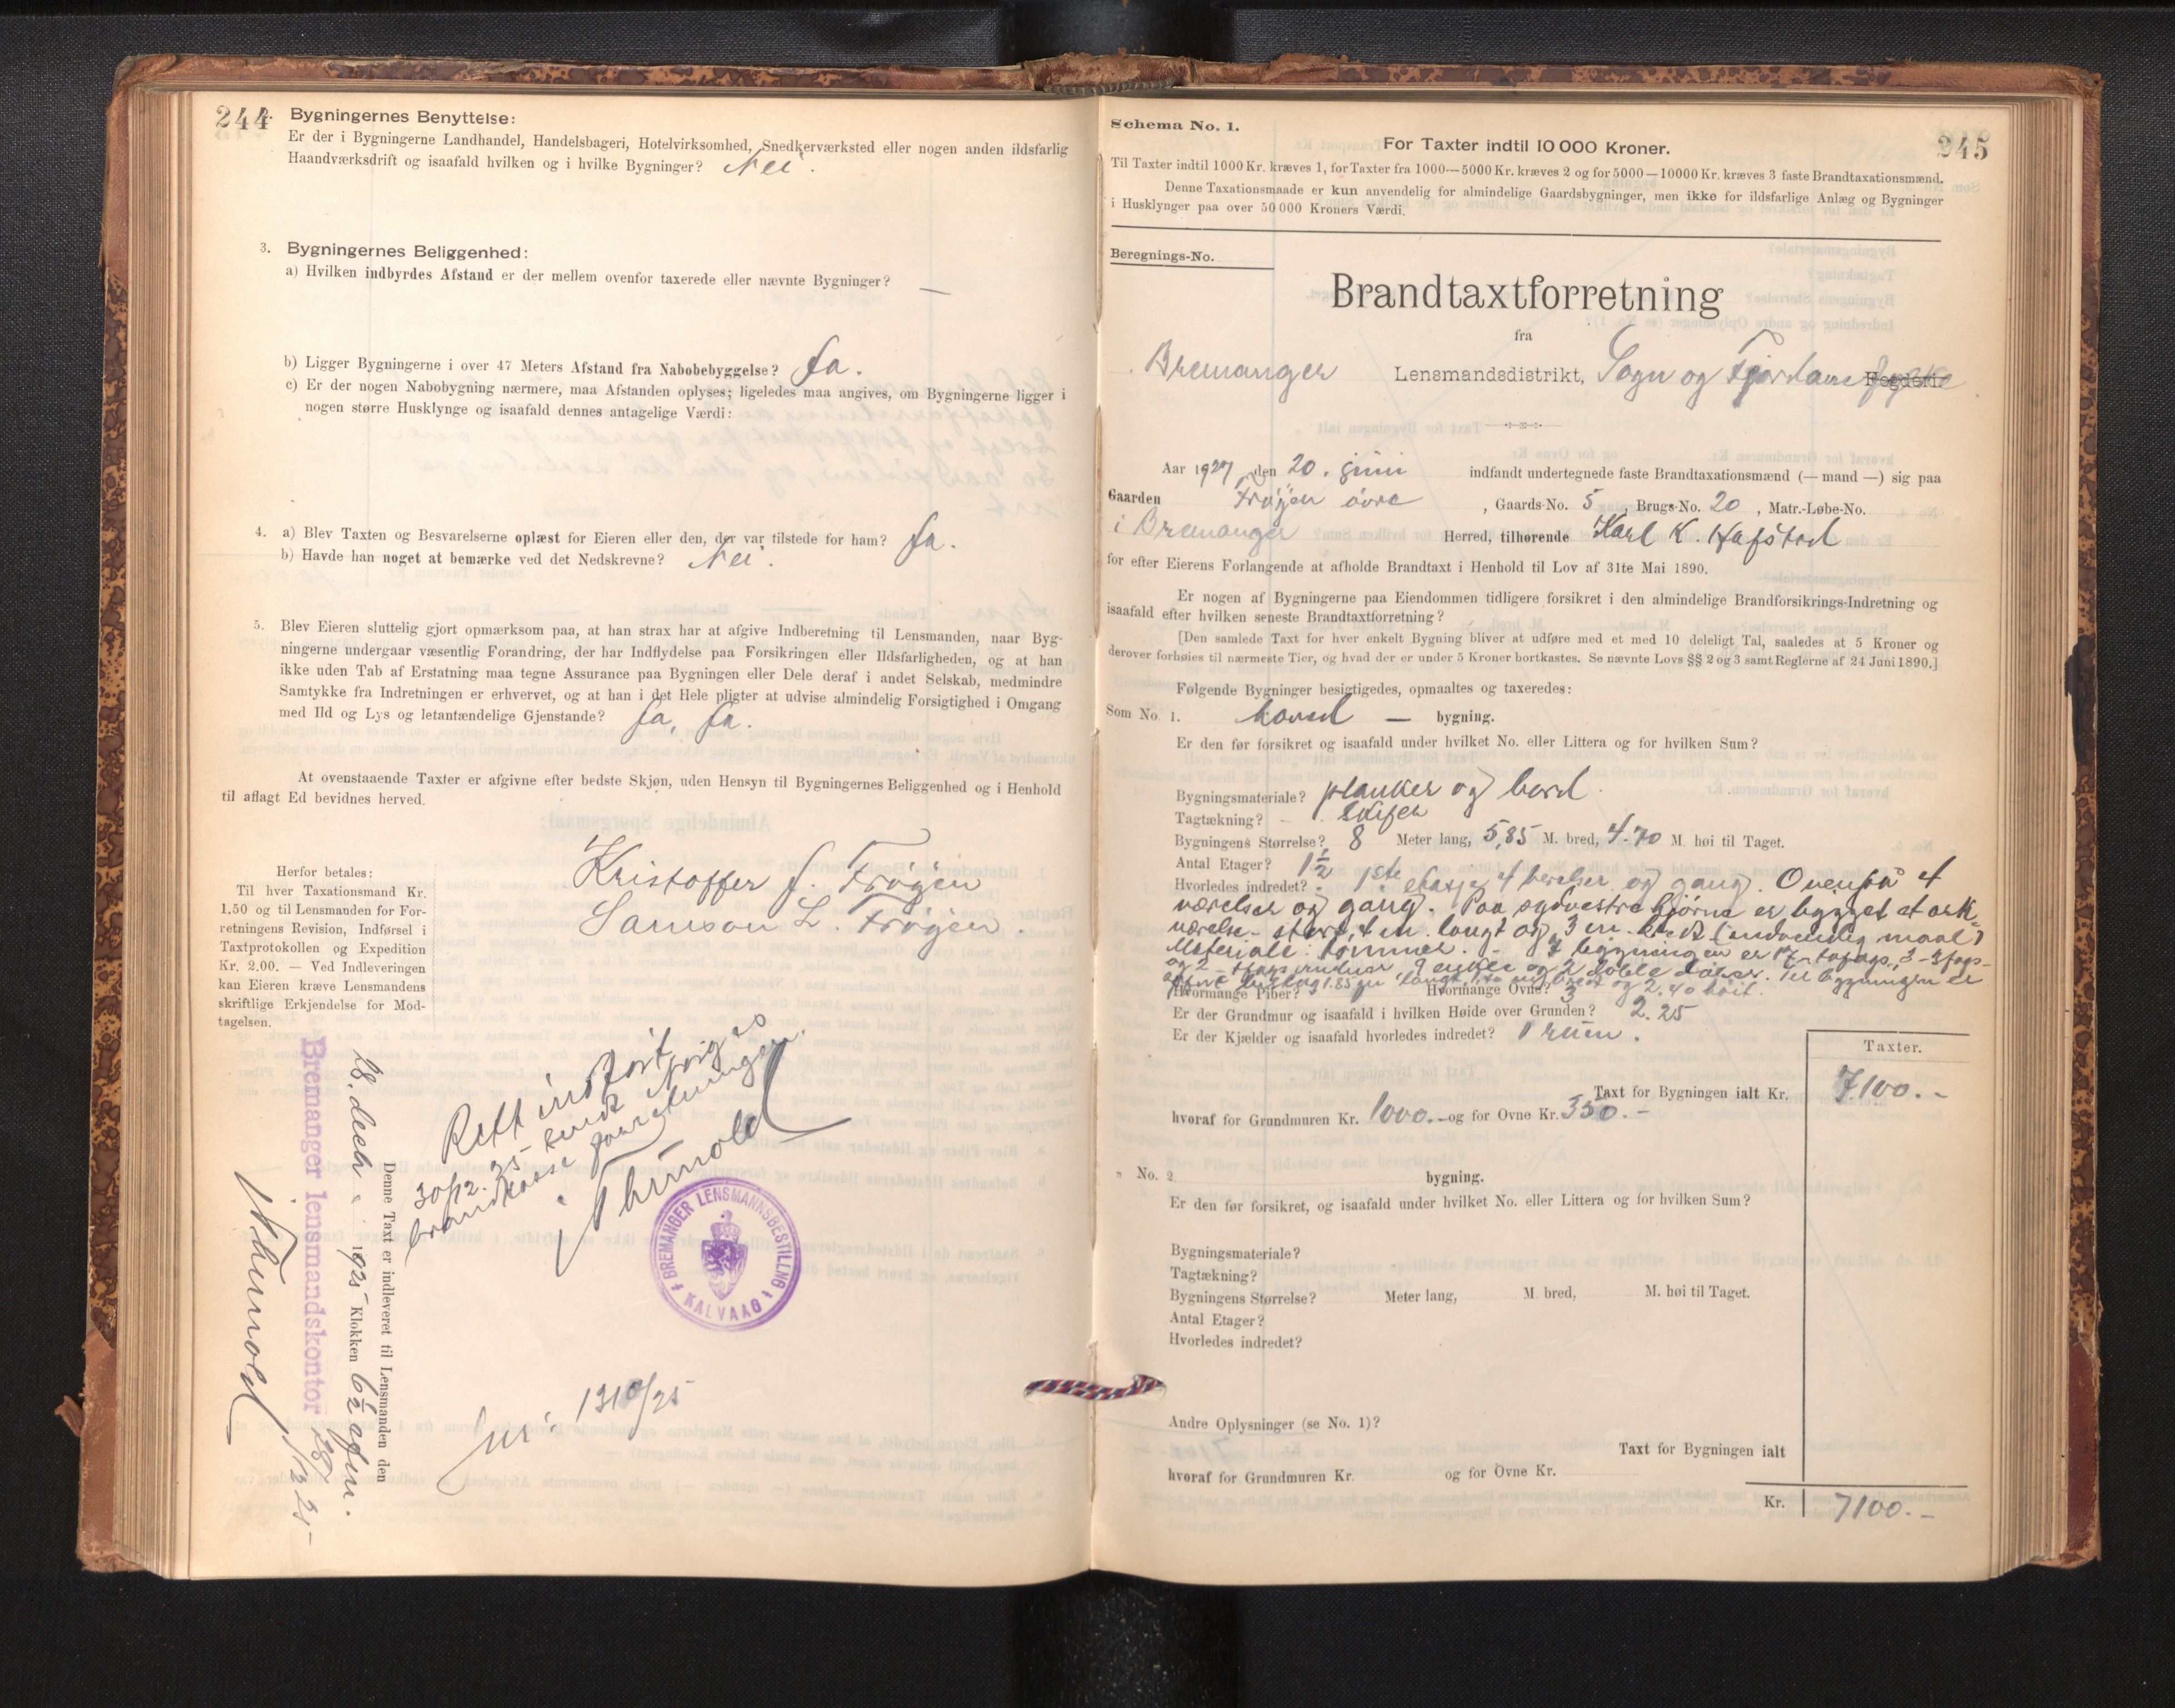 244
2. Bygningernes Benyttelse:
Er der i Bygningerne Landhandel, Handelsbageri, Hotelvirksomhed, Snedkerværksted eller nogen anden ildsfarlig
Haandværksdrift og isaafald hvilken og i hvilke Bygninger? Nei.
3. Bygningernes Beliggenhed:
a) Hvilken indbyrdes Afstand er der mellem ovenfor taxerede eller nævnte Bygninger? —
b) Ligger Bygningerne i over 47 Meters Afstand fra Nabobebyggelse? Ja.
c) Er der nogen Nabobygning nærmere, maa Afstanden oplyses; ligeledes maa angives, om Bygningerne ligger i
nogen større Husklynge og isaafald dennes antagelige Værdi:
4. a) Blev Taxten og Besvarelserne oplæst for Eieren eller den, der var tilstede for ham? Ja.
b) Havde han noget at bemærke ved det Nedskrevne? Nei.
5. Blev Eieren sluttelig gjort opmærksom paa, at han strax har at afgive Indberetning til Lensmanden, naar Byg-
ningerne undergaar væsentlig Forandring, der har Indflydelse paa Forsikringen eller Ildsfarligheden, og at han
ikke uden Tab af Erstatning maa tegne Assurance paa Bygningen eller Dele deraf i andet Selskab, medmindre
Samtykke fra Indretningen er erhvervet, og at han i det Hele pligter at udvise almindelig Forsigtighed i Omgang
med Ild og Lys og letantændelige Gjenstande? Ja, Ja.
At ovenstaaende Taxter er afgivne efter bedste Skjøn, uden Hensyn til Bygningernes Beliggenhed og i Henhold
til aflagt Ed bevidnes herved.
Kristoffer J. Frøyen
Samson L. Frøyen.
Herfor betales:
Til hver Taxationsmand Kr.
1.50 og til Lensmanden for For-
retningens Revision, Indførsel i
Taxtprotokollen og Expedition
Kr. 2.00. — Ved Indleveringen
kan Eieren kræve Lensmandens
skriftlige Erkjendelse for Mod-
tagelsen.
Denne Taxt er indleveret til Lensmanden den
28. decbr. 1925 Klokken 6½ efm.
Bremanger lensmandskontor 28/12 25
Thunold
Rett indført
30/12. 25
brandkasse forretningen.
Thunold
BREMANGER LENSMANNSBESTILLNG
KALVAAG
1310/25
245
Schema No. 1.
For Taxter indtil 10 000 Kroner.
Til Taxter indtil 1000 Kr. kræves 1, for Taxter fra 1000—5000 Kr. kræves 2 og for 5000—10000 Kr. kræves 3 faste Brandtaxationsmænd.
Denne Taxationsmaade er kun anvendelig for almindelige Gaardsbygninger, men ikke for ildsfarlige Anlæg og Bygninger
i Husklynger paa over 50 000 Kroners Værdi.
Beregnings-No.
Brandtaxtforretning
fra
Bremanger Lensmandsdistrikt, Sogn og Fjordane fylke Fogderi
Aar 1927, den 20. juni indfandt undertegnede faste Brandtaxationsmænd (— mand —) sig paa
Gaarden Frøyen øvre, Gaards-No. 5, Brugs-No. 20, Matr.-Løbe-No.
i Bremanger Herred, tilhørende Karl K. Hafstad
for efter Eierens Forlangende at afholde Brandtaxt i Henhold til Lov af 31te Mai 1890.
Er nogen af Bygningerne paa Eiendommen tidligere forsikret i den almindelige Brandforsikrings-Indretning og
isaafald efter hvilken seneste Brandtaxtforretning?
[Den samlede Taxt for hver enkelt Bygning bliver at udføre med et med 10 deleligt Tal, saaledes at 5 Kroner og
derover forhøies til nærmeste Tier, og hvad der er under 5 Kroner bortkastes. Se nævnte Lovs §§ 2 og 3 samt Reglerne af 24 Juni 1890.]
Følgende Bygninger besigtigedes, opmaaltes og taxeredes:
Som No. 1. — bygning.
Er den før forsikret og isaafald under hvilket No. eller Littera og for hvilken Sum?
Bygningsmateriale? planker og bord.
Tagtækning? Skifer
Bygningens Størrelse? 8 Meter lang, 5,85 M. bred, 4.70 M. høi til Taget.
Antal Etager? 1½
Hvorledes indredet? 1ste etasje 4 værelser og gang. Ovenpaa 4
værelser og gang. Paa sydvestre hjørne er bygget et ark-
værelse stort 4 m. langt og 3 m. bredt (indvendig maal)
Materiale: tømmer. I bygningen er 17 tofags, 3 - 3 fags-
og 2 - fags vinduer, 9 enkle og 2 doble dører. Til bygningen er
Hvormange Piber? 1 Hvormange Ovne? 3
Er der Grundmur og isaafald i hvilken Høide over Grunden? 2.25
Er der Kjælder og isaafald hvorledes indredet? 1 rum.
Taxter.
Taxt for Bygningen ialt Kr. 7100.-
hvoraf for Grundmuren Kr. 1000.- og for Ovne Kr. 350.-
" No. 2 bygning.
Er den før forsikret, og isaafald under hvilket No. eller Littera og for hvilken Sum?
Bygningsmateriale?
Tagtækning?
Bygningens Størrelse? Meter lang, M. bred, M. høi til Taget.
Antal Etager?
Hvorledes indredet?
Andre Oplysninger (se No. 1)?
Taxt for Bygningen ialt
hvoraf for Grundmuren Kr. og for Ovne Kr.
Kr. 7100.-